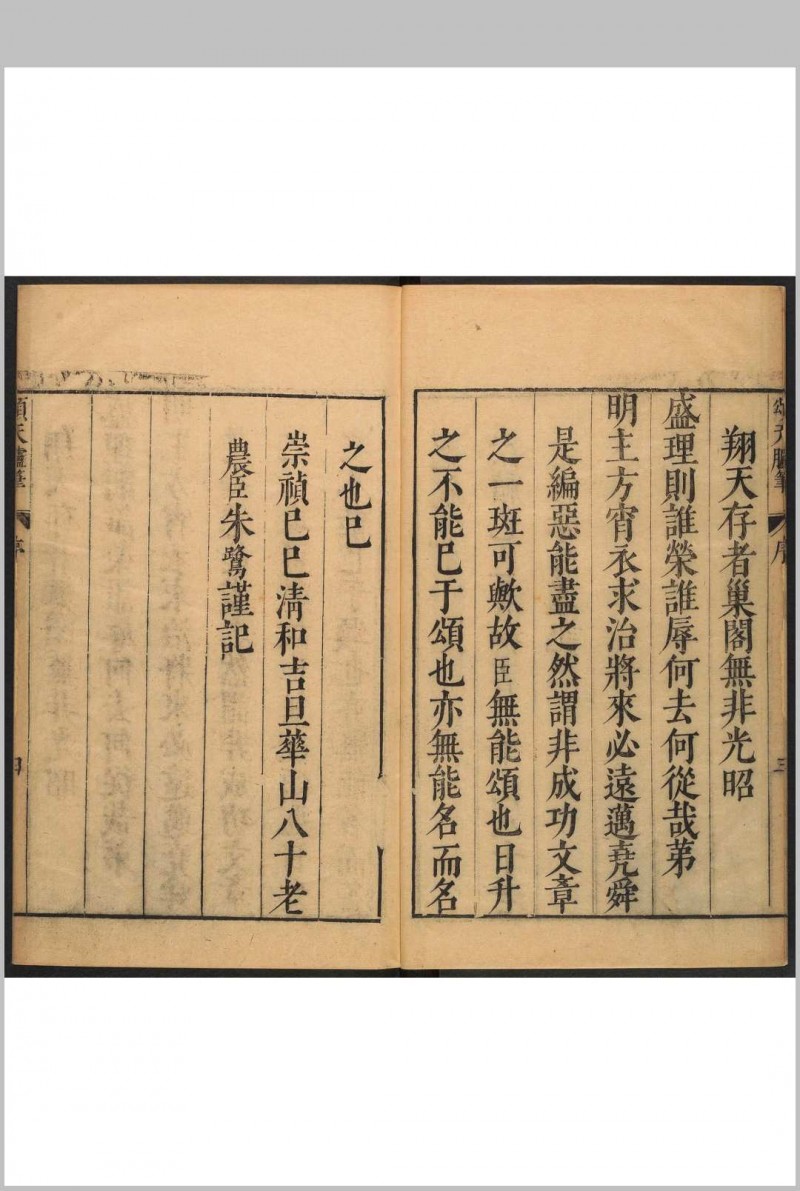 頌天臚筆
序
三
翔天存者巢閣無非光昭
盛理則誰榮誰辱何去何從哉第
明主方宵衣求治將來必遠邁堯舜
是編惡能盡之然謂非成功文章
之一斑可歟故臣無能頌也日升
之不能已于頌也亦無能名而名
之也已
崇禎己巳清和吉旦華山八十老
農臣朱鷺謹記
頌天臚筆
序
四